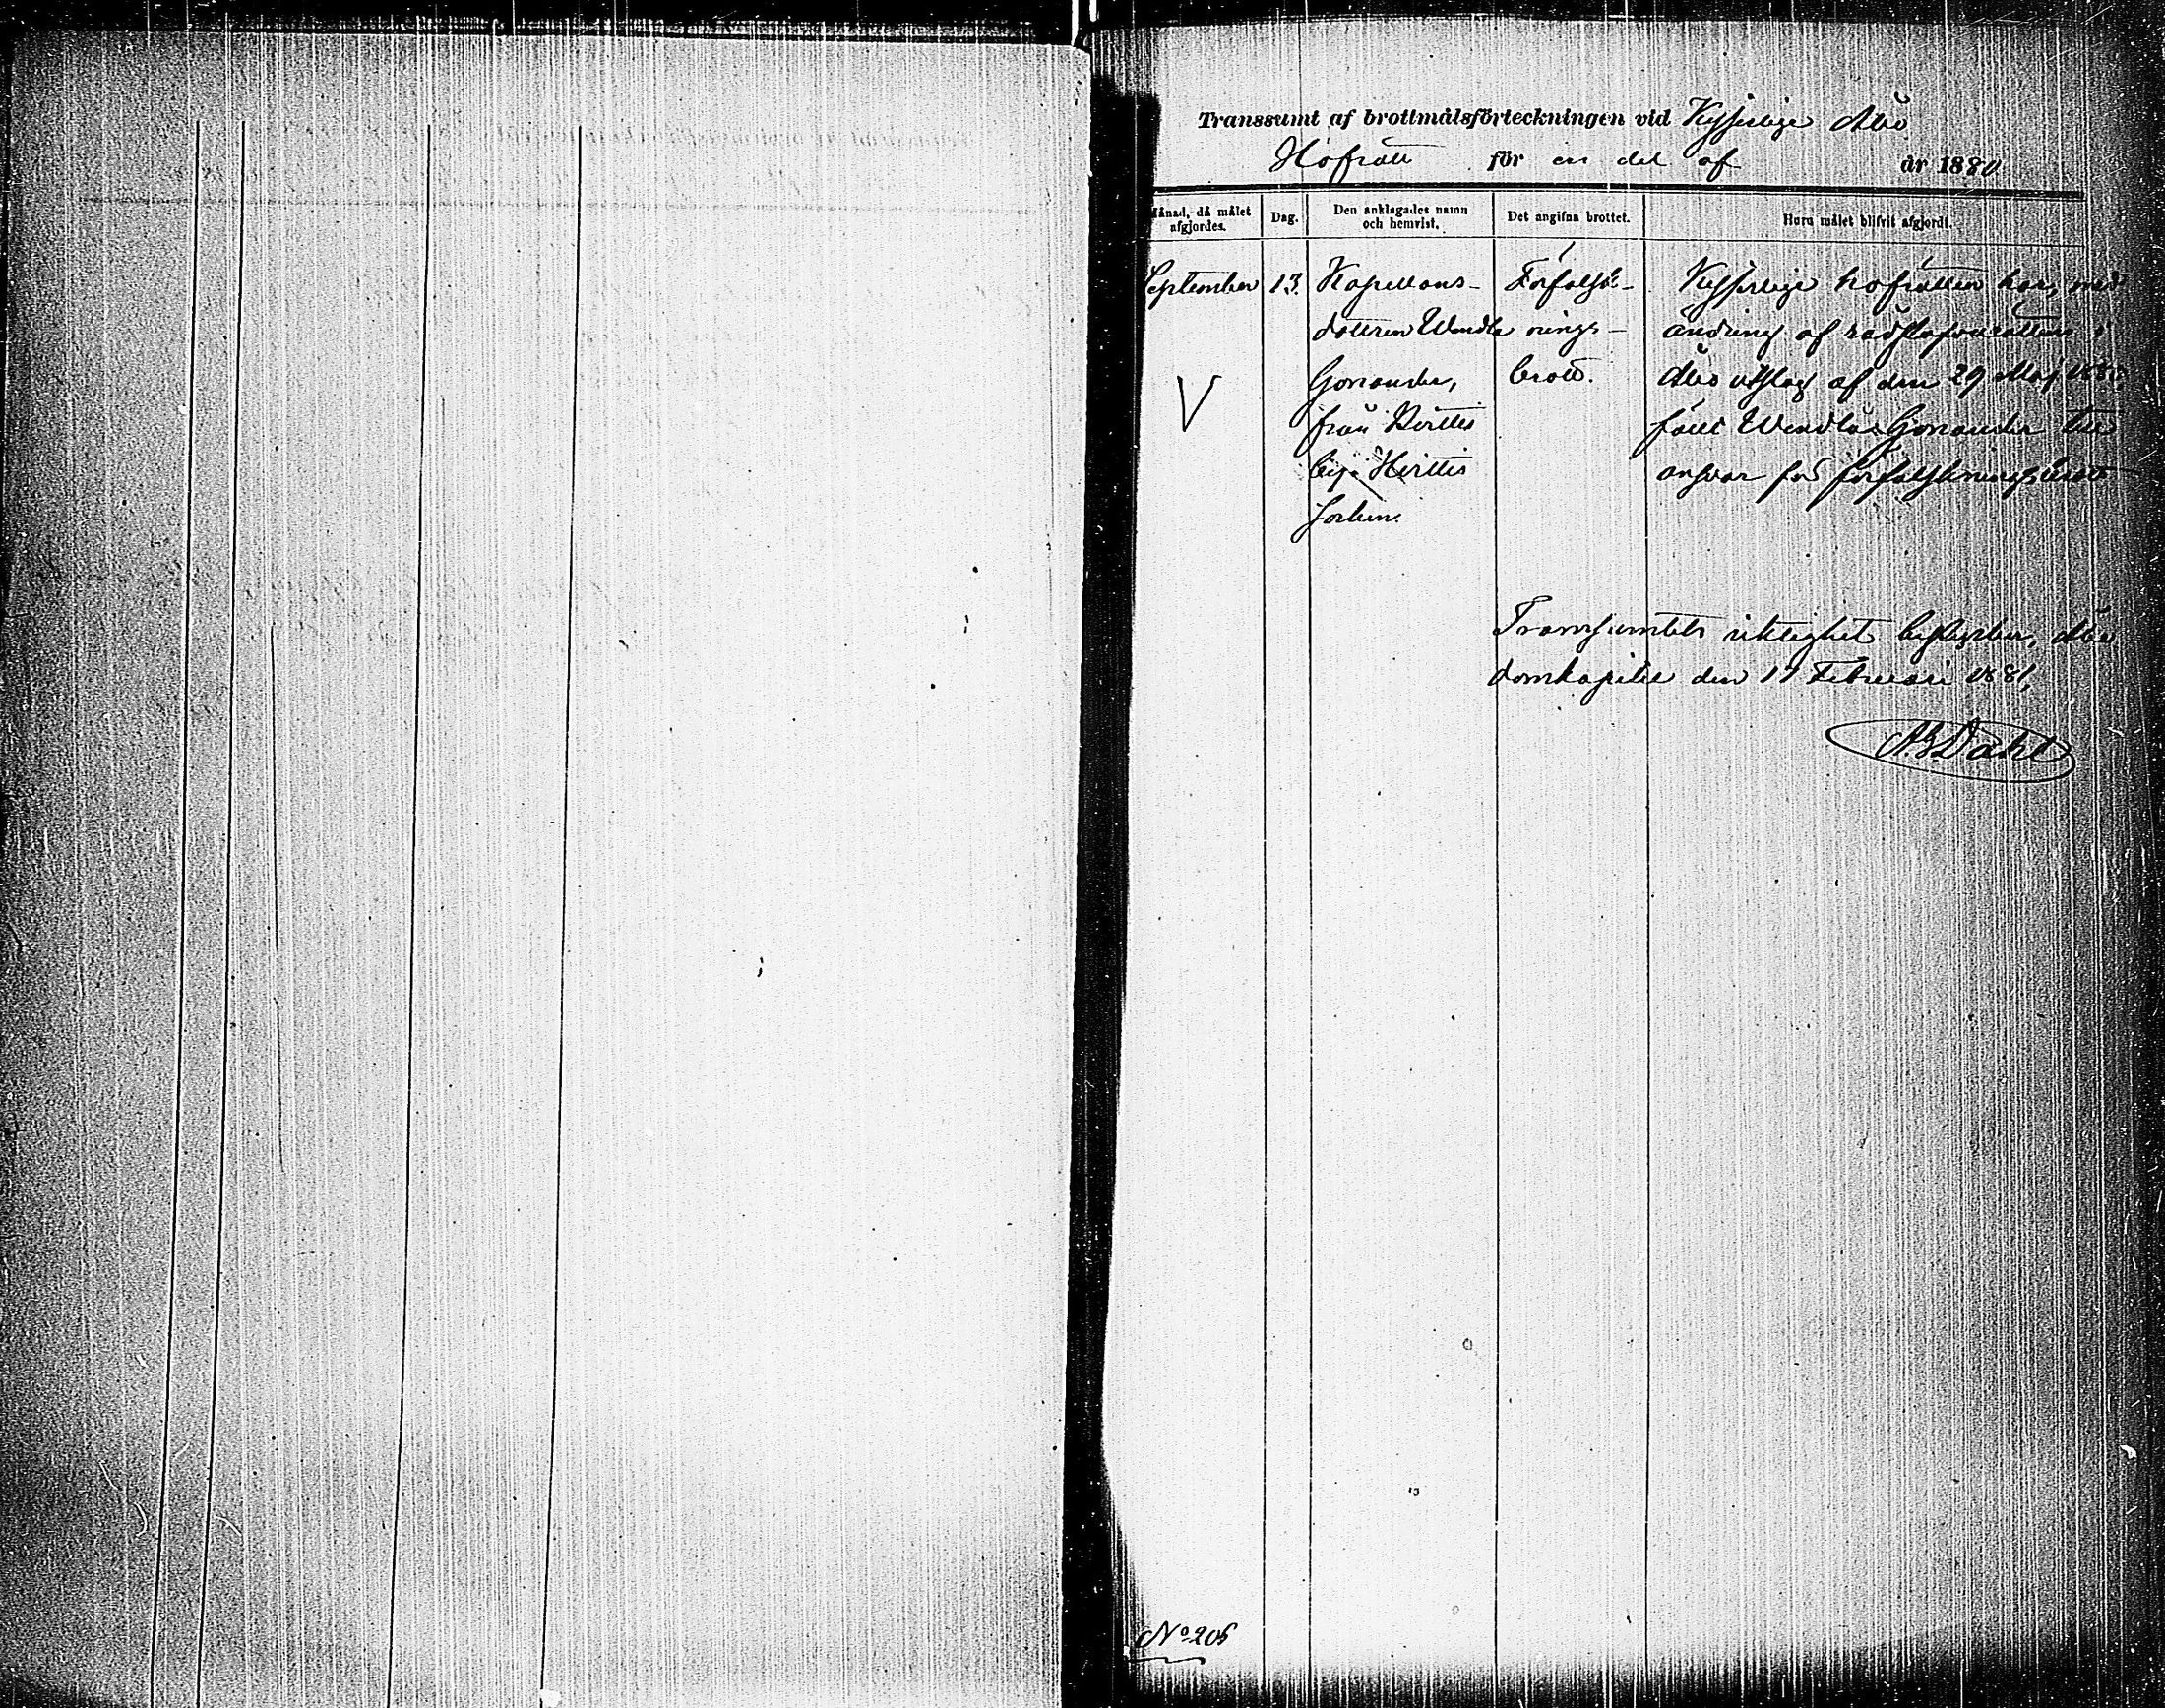 Transsumt af brottmålsförteckningen vid Kejserlige Åbo
Hofrätt för en del af år 1880
Månad, då målet afgjordes.
Dag.
Den anklagades namn och hemvist.
Det angifna brottet.
Huru målet blifvit afgjordt.
September 13.
Kapellans-
dottren Wendla
Gonander,
från Hirttis
by Hirttis
socken.
Förfalsk-
nings-
brott.
Kejserlige hofrätten har, med
ändring af rådstufvurättens i
Åbo utslag af den 29 Maj 1880,
fällt Wendla Gonander till
ansvar för förfalskningsbrott
V
Transsumtets riktighet betygar, Åbo
domkapitel den 17 Februari 1881,
Dahl
No 205